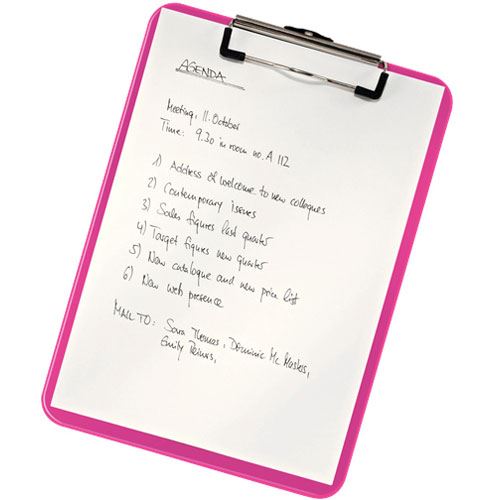 AGENDA
Meeting, 11. October
Time: 9.30 in room no. A 112
1) Address of welcome to new colleques
2) Contemporary issues
3) Sales figures last quarter
4) Target figures new quarter
5) New catalogue and new price list
6) New web presence
MAIL TO: Sara Thomas, Dominic Mc
Emily